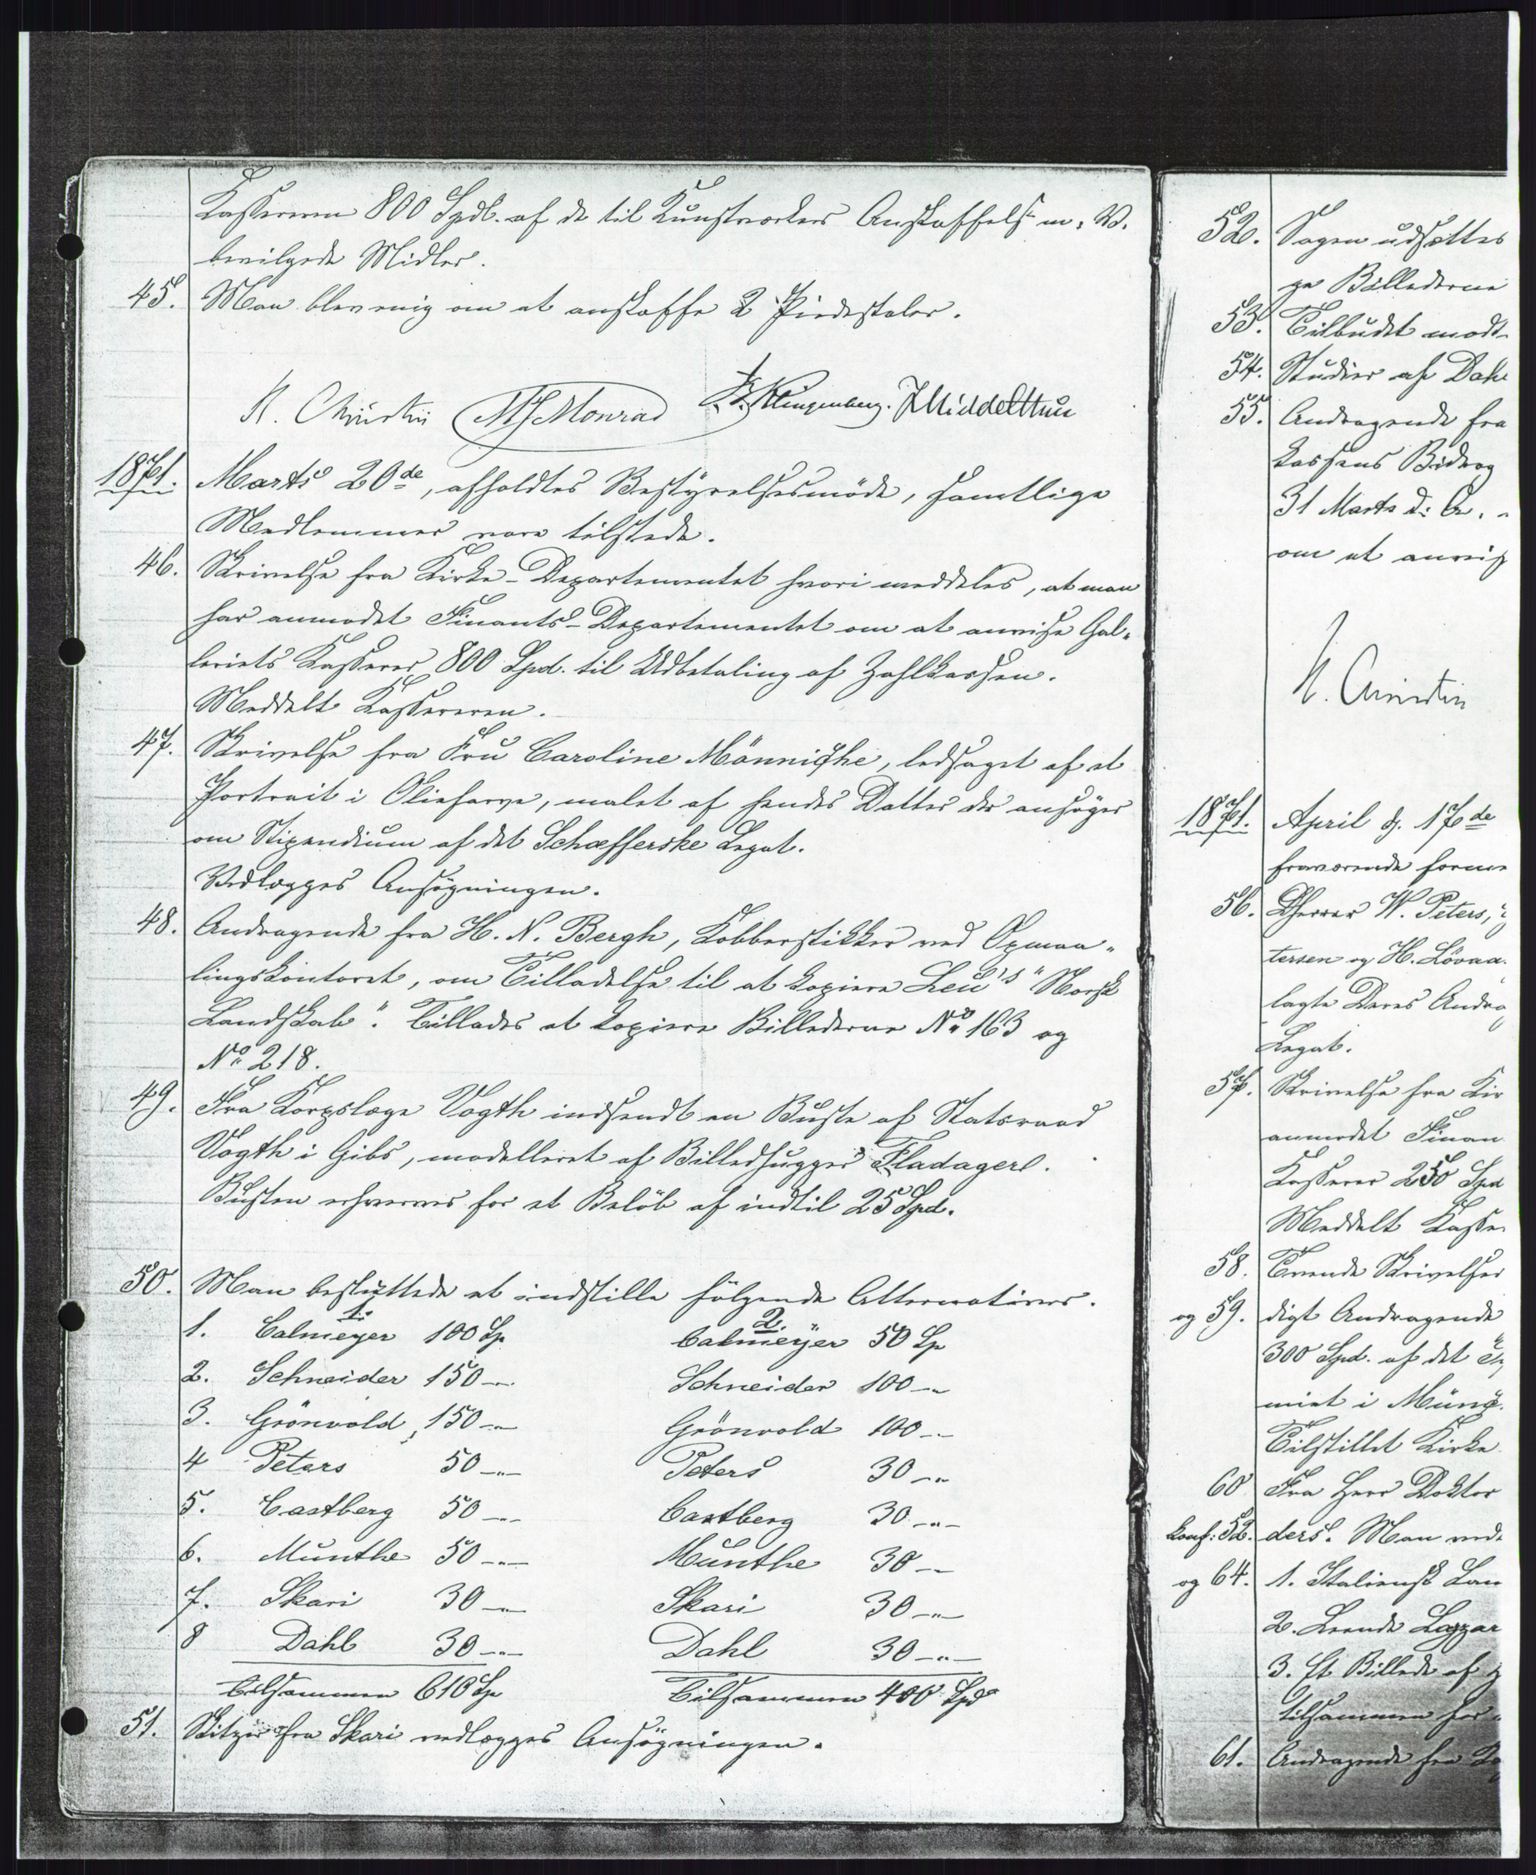 Kassereren 800 Spdl. af de til Kunstværkers Anskaffelse m. V.
bevilgede Midler.
45. Man blev enig om at anskaffe 2 Piedestaler.
H. Christie M J Monrad Klingenberg. J Middelthun
1871. Marts 20de, afholdtes Bestyrelsesmöde, samtlige
Medlemmer vare tilstede.
46. Skrivelse fra Kirke-Departementet hvori meddeles, at man
har anmodet Finants-Departementet om at anvise Gal-
leriets Kasserer 800 Spd. til Udbetaling af Zahlkassen.
Meddelt Kassereren.
47. Skrivelse fra Fru Caroline Männiche, ledsaget af et
Portrait i Oliefarve, malet af hendes Datter der ansöger
om Stipendium af det Schæfferske Legat.
Vedlægges Ansögningen.
48. Andragende fra H. N. Bergh, Kobberstikker ved Opmaa-
lingskontoret, om Tilladelse til at kopiere Leu's "Norsk
Landskab". Tillades at kopiere Billederne No 163 og
No 218.
49. Fra Korpslæge Vogth indsendt en Buste af Statsraad
Vogth i Gibs, modelleret af Billedhugger Fladager.
Busten erhverves for et Belöb af indtil 25 Spd.
50. Man besluttede at indstille fölgende Alternativer.
1. 2.
1. Calmeyer 100 Sp Calmeyer 50 Sp
2. Schneider 150 -"- Schneider 100 -"-
3. Grönvold 150 -"- Grönvold 100 -"-
4 Peters 50 -"- Peters 30 -"-
5. Castberg 50 -"- Castberg 30 -"-
6. Munthe 50 -"- Munthe 30 -"-
7. Skari 30 -"- Skari 30 -"-
8 Dahl 30 -"- Dahl 30 -"-
Tilsammen 610 Sp Tilsammen 400 Spd
51. Skitzer fra Skari vedlægges Ansögningen.
52. Sagen udsættes
ge Billederne
53. Tilbudet modt
54. Studier af Dahl
55. Andragende fra
kassens Bidrag
31 Marts d: A.
om at anvis
H. Christie
1871. April d. 17de
fraværende
56. Dherrer W. Peters,
tersen og H. Lövaa
lagte Deres Andra
Legat.
57. Skrivelse fra Kir
anmodet Finan
Kasserer 250 Spd
Meddelt Kasse
58. Tvende Skrivelser
og 59. digt Andragende
300 Spd. af det
miet i Münc
Tilstillet Kirke
60 Fra Herr Doktor
konf: 52. ders. Man ved
og 64. 1. Italiensk Lan
2. Leende Lazzar
3. Et Billede af
tilsammen for
61. Andragende fra